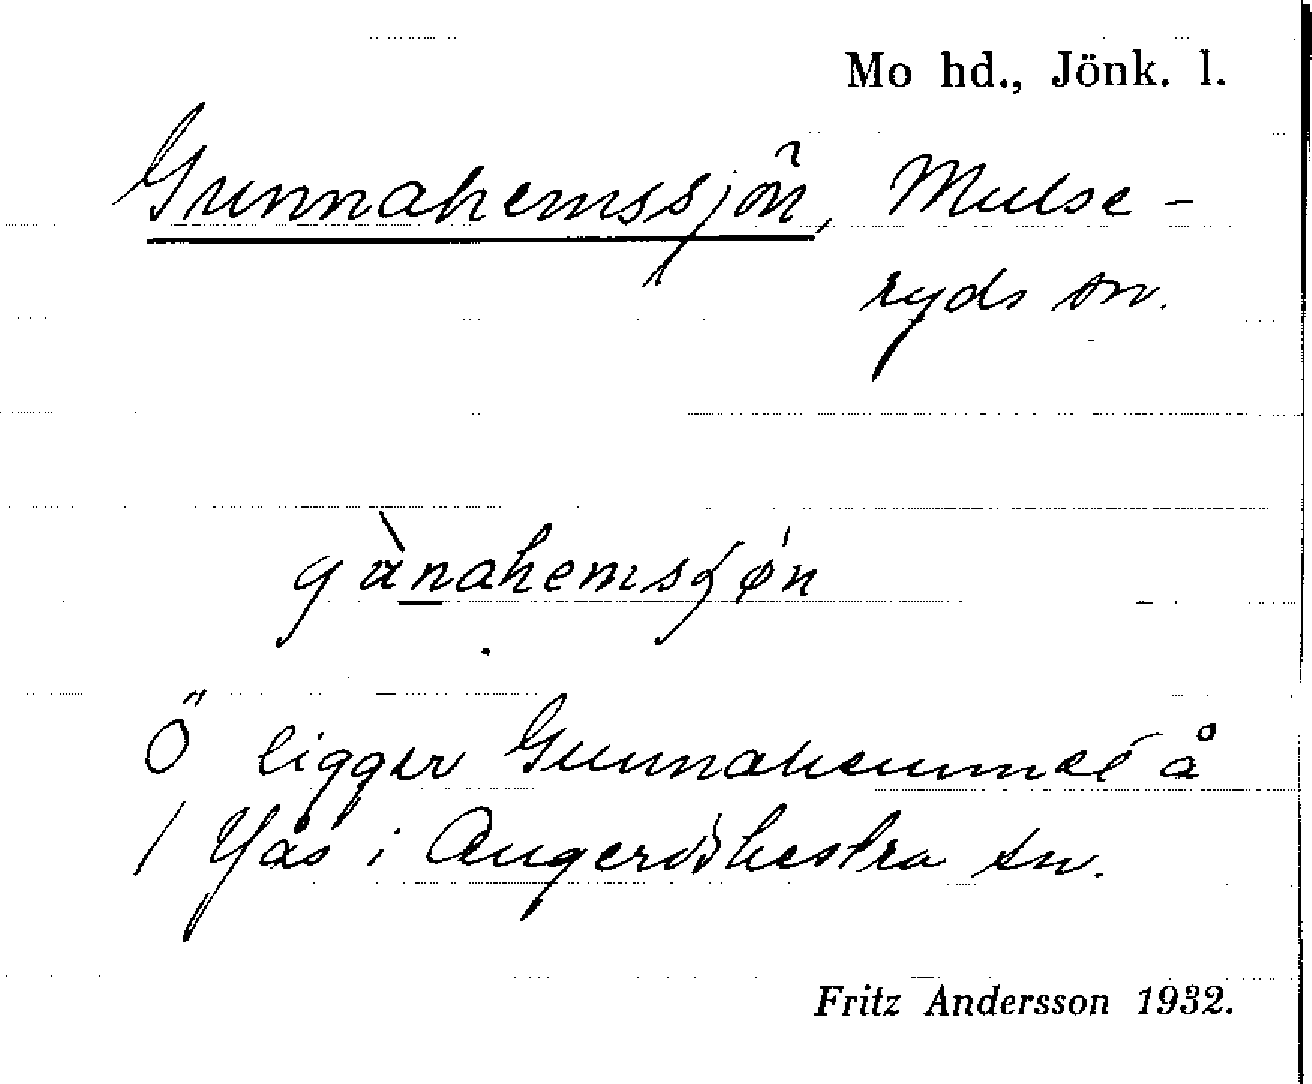 Mo hd., Jönk. l.
Gunnahemssjön, Mulse-
ryds sn.
gànahemsʃøn
Ö ligger Gunnahemmet å
1 Yås i Angerdshestra sn.
Fritz Andersson 1932.